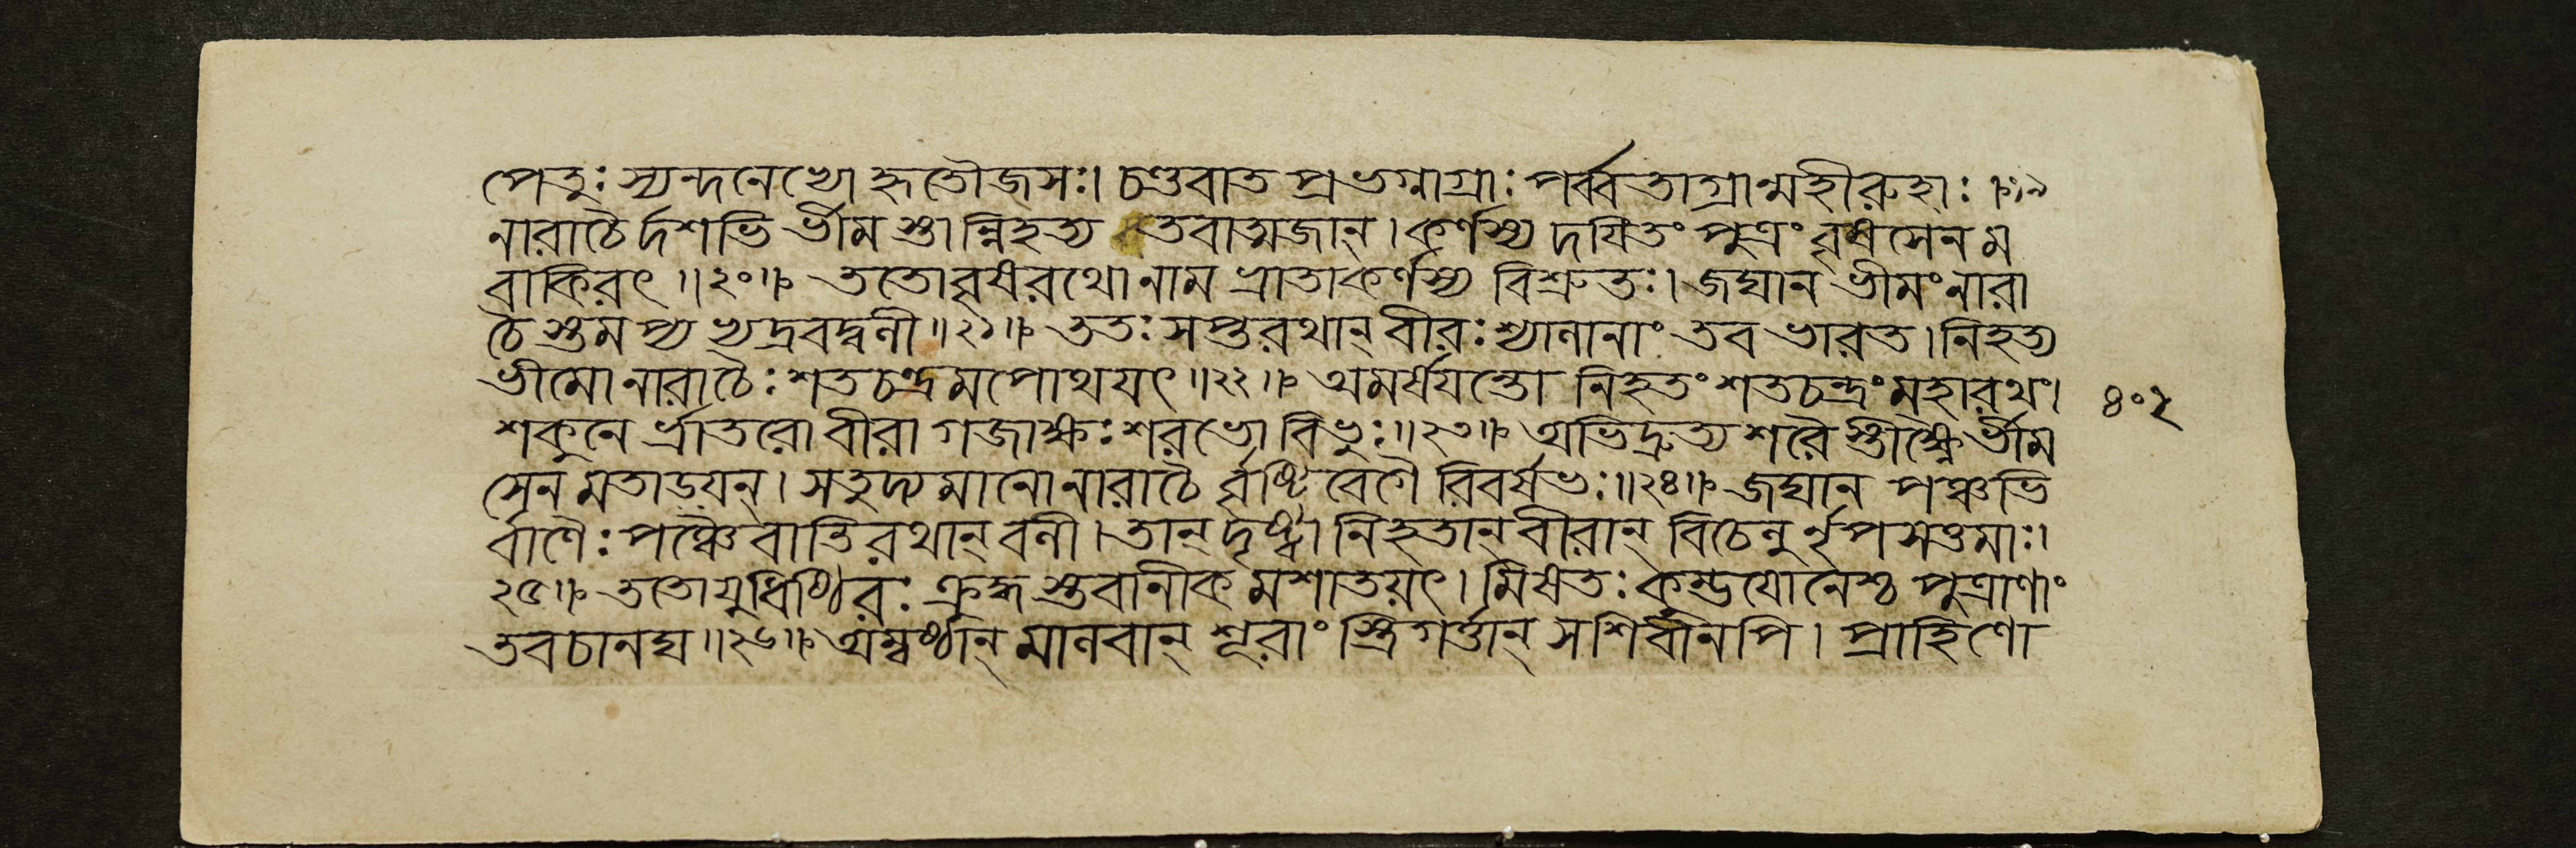 পেতুঃ স্যন্দনেভ্যো হৃতৌজসঃ। চণ্ডবাত প্রভগ্নাগ্রাঃ পর্ব্বতাগ্রান্মহীরুহাঃ ১৯
নারাচৈর্দশভি র্ভীম স্তান্নিহত্য তবাত্মজান্। কর্ণস্য দয়িতং পুত্রং বৃষসেন ম
বাকিরৎ॥২০॥ ততোবৃষরথোনাম ভ্রাতাকর্ণস্য বিশ্রুতঃ। জঘান ভীমংনারা
চৈ স্তমপ্য ভ্যদ্রবদ্বলী॥২১॥ ততঃ সপ্তরথান্ বীরঃ শ্যালানাং তব ভারত।নিহত্য
ভীমো নারাচৈঃ শতচন্দ্রমপোথযৎ॥২২॥ অমর্ষযন্তো নিহতং শতচন্দ্রং মহারথং। ৪০২
শকুনে র্ভ্রাতরো বীরা গজাক্ষঃ শরভো বিভুঃ॥২৩॥ অভিদ্রুত্য শরৈ স্তীক্ষ্ণৈর্ভীম
সেন মতাড়যন্। সতুদ্যমানো নারাচৈ র্বৃষ্টি বেগৈ রিবর্ষভঃ॥২৪॥ জঘান পঞ্চভি
র্বাণৈঃ পঞ্চৈবাতিরথান্ বলী। তান্ দৃষ্ট্বা নিহতান্ বীরান্ বিচেলু র্নৃপসত্তমাঃ।
২৫॥ ততোযুধিষ্ঠিরঃ ক্রুদ্ধ স্তবানীক মশাতয়ৎ। মিষতঃ কুম্ভযোনেশ্চ পুত্রাণাং
তবচানঘ॥২৬॥ অম্বষ্ঠান্ মালবান্ শূরাং স্ত্রিগর্ত্তান্ সশিবীনপি। প্রাহিণো